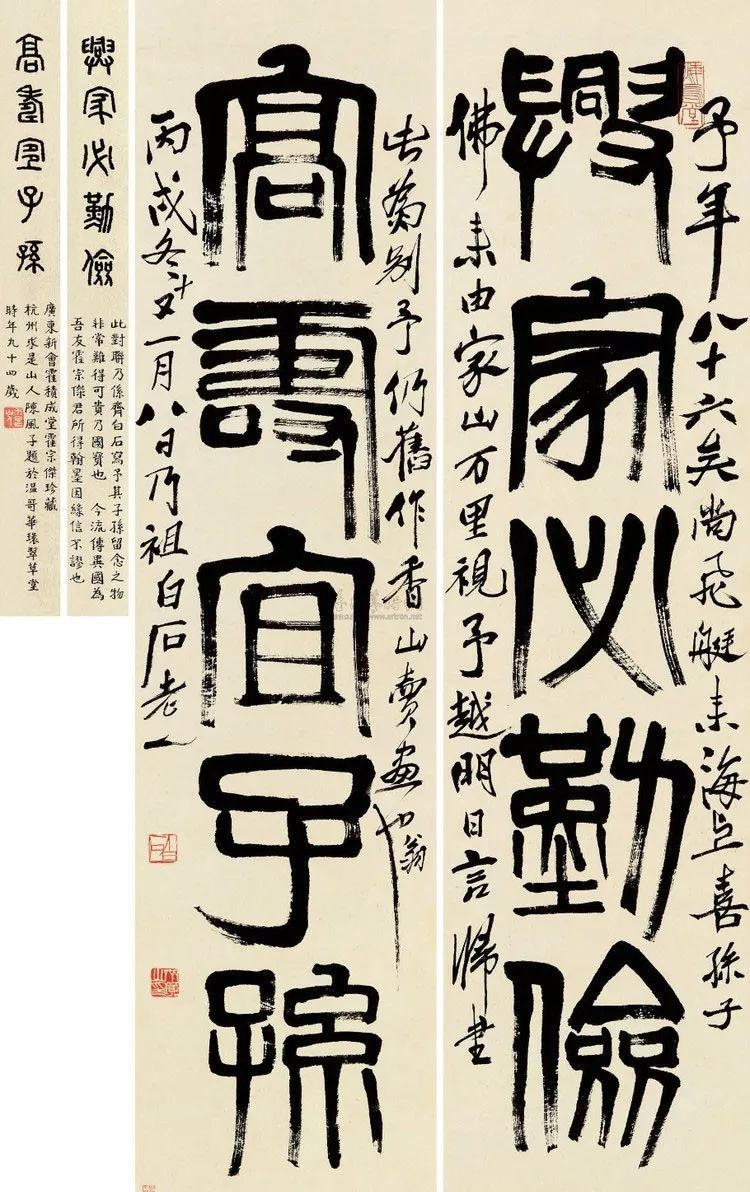 予年八十六矣尚飛艇来海上喜孫子
興家必勤儉
佛来由家山万里視予越明日言歸書
此為別予仍舊作香山賣畫翁也
高壽宜子孫
丙戌冬十又一月八日乃祖白石老人
興家必勤儉
此對聯乃係齊白石寫予其子孫留念之物
非常難得可貴乃國寶也 今流傳異國為
吾友霍宗傑君所得翰墨因緣信不謬也
高壽宜子孫
廣東新會霍積成堂霍宗傑珍藏
杭州求是山人陳風子題於温哥華環翠草堂
時年九十四歲